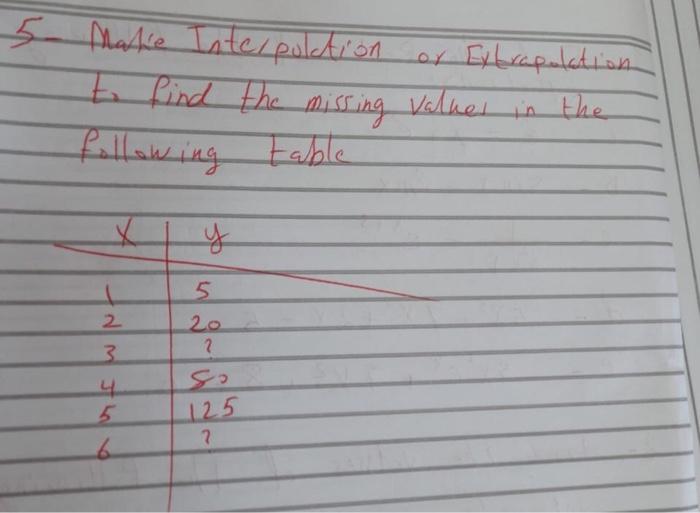 5- Make Interpolation or Extrapolation
to find the missing values in the
following table
x y
1 5
2 20
3 ?
4 50
5 125
6 ?